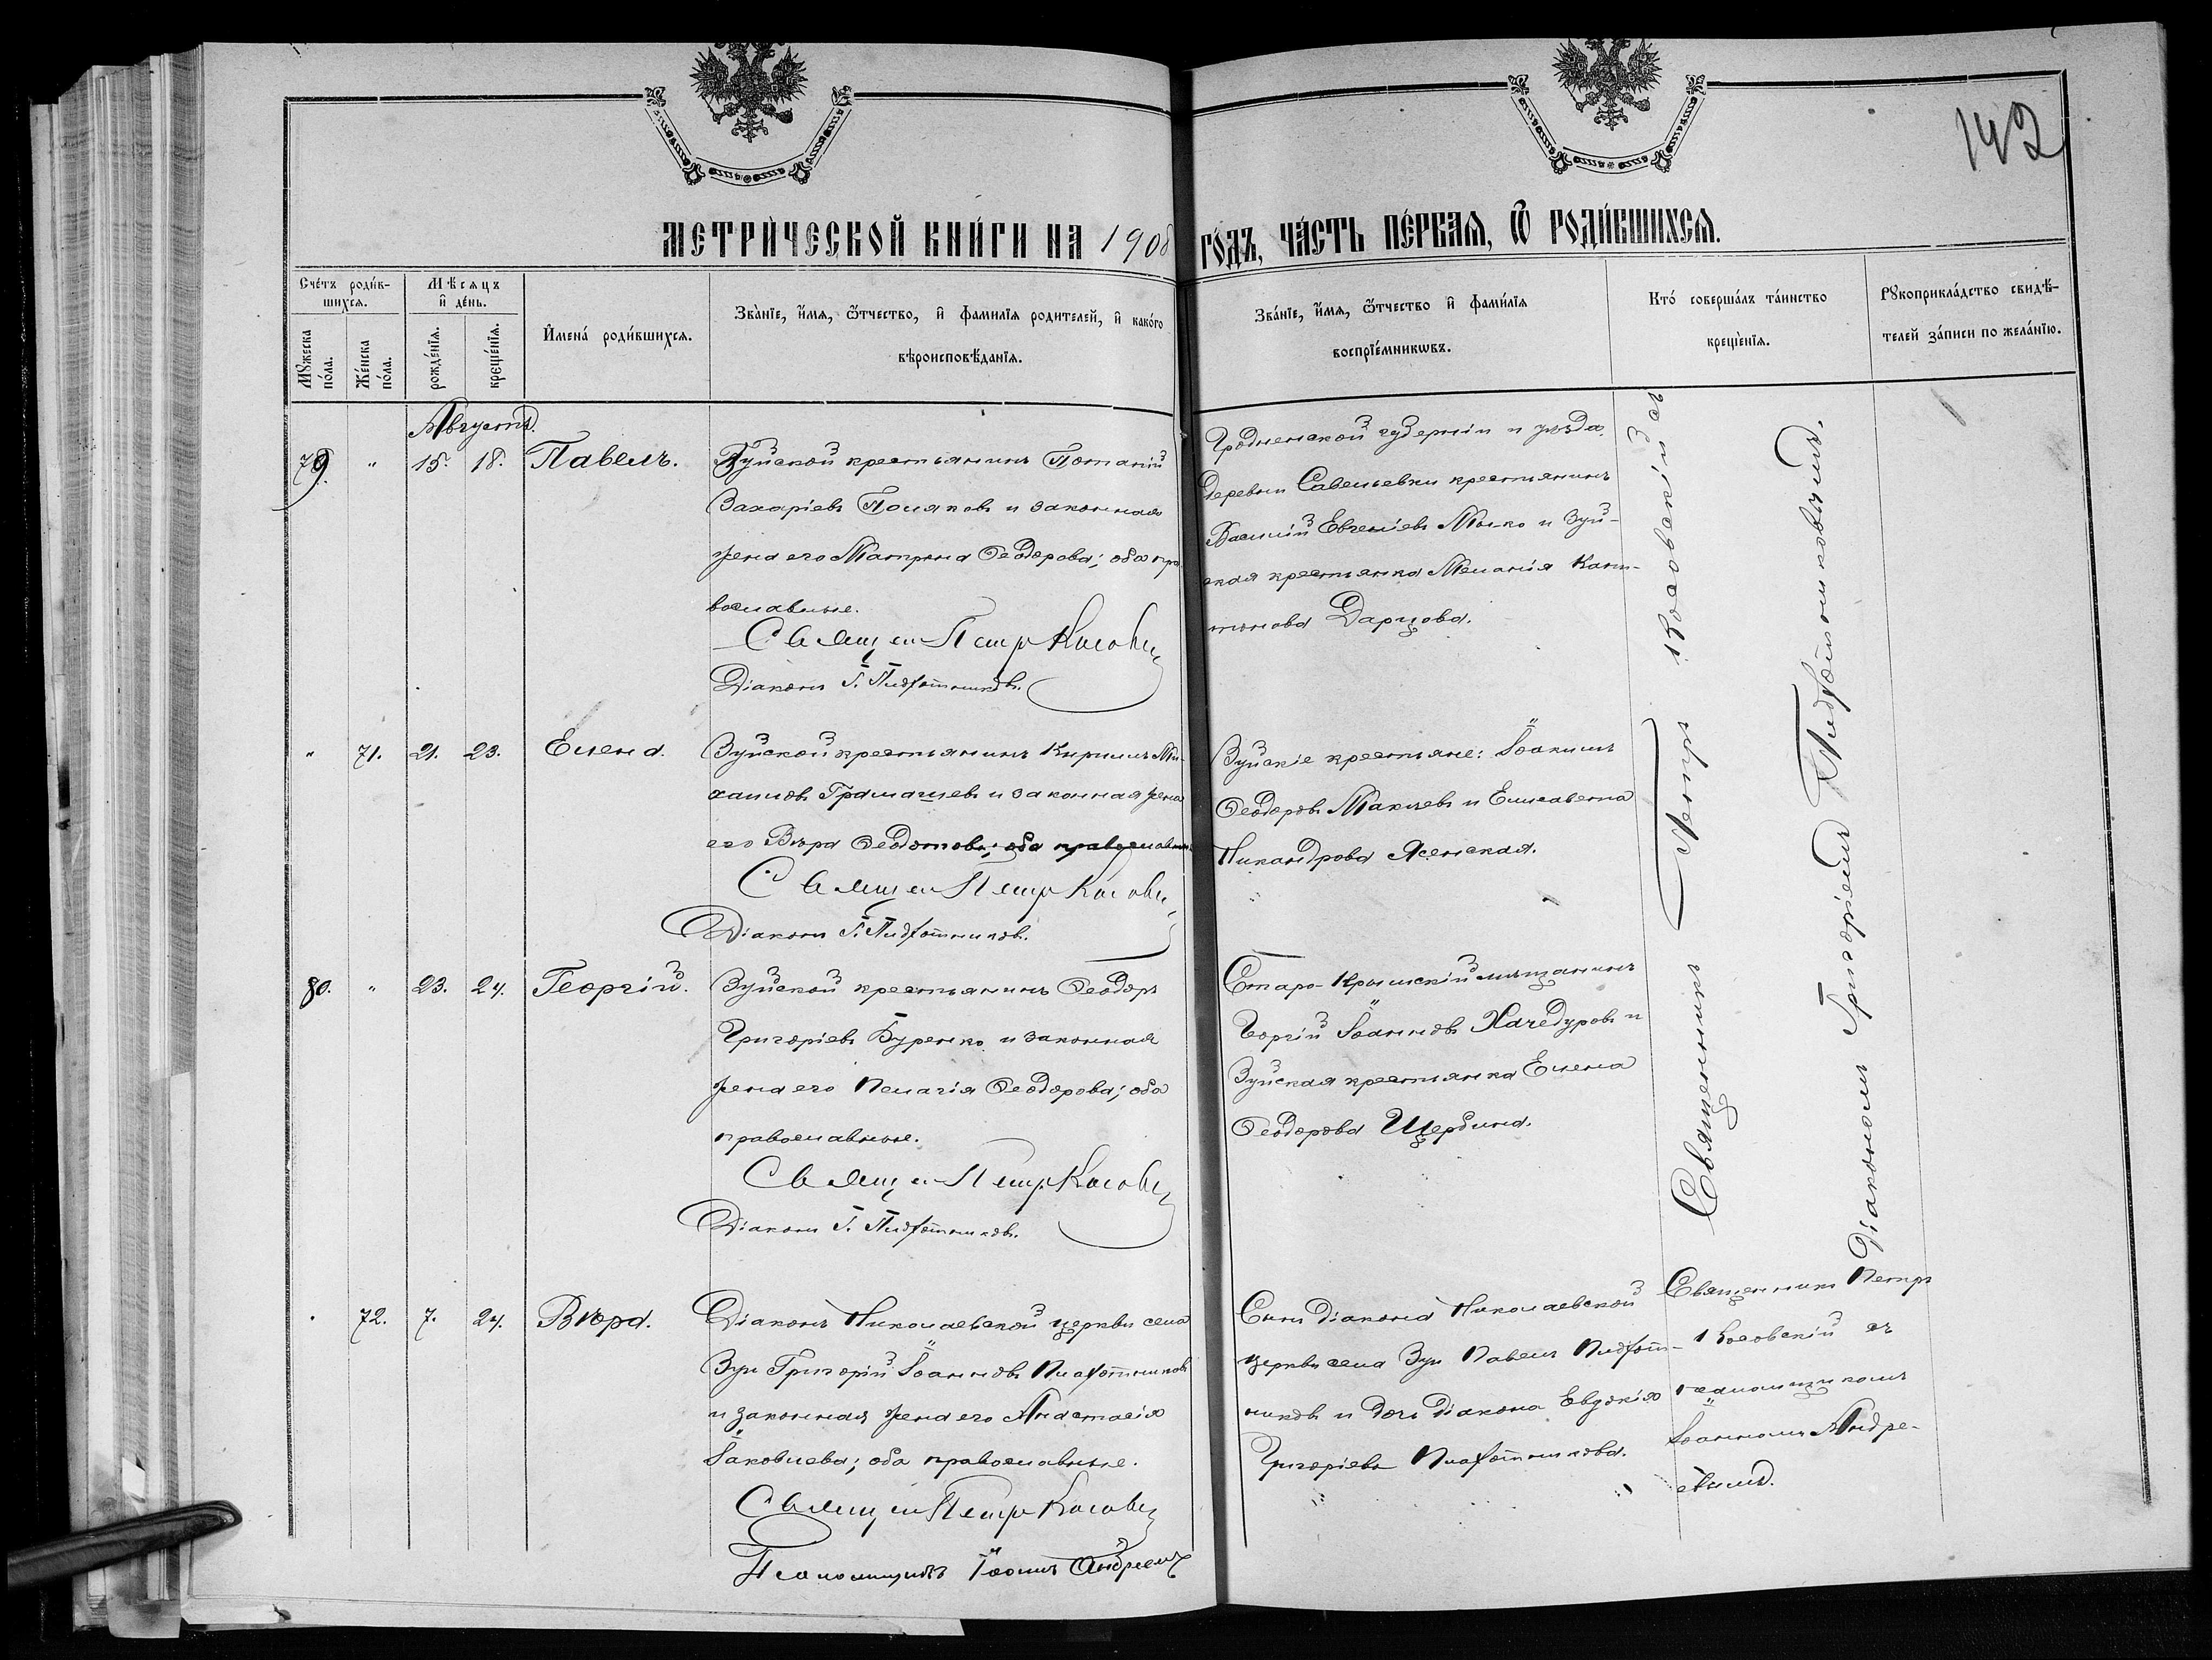 142
МЕТРИ́ЧЕСКОЙ КНИ́ГИ НА 1908 ГО́ДЪ, ЧА́СТЬ ПЕ́РВАѦ, Ѿ РОДИ́ВШИХСѦ.
Счетъ роди́в-
шихсѧ.
Мꙋжеска по́ла.
Же́нска по́ла.
Мѣсѧцъ
и҆ де́нь.
рожде́нїѧ.
креще́нїѧ.
И҆мена́ роди́вшихсѧ.
Зва́нїе, и҆́мѧ, ѻ҆́тчество, и҆ фами́лїѧ родителей, и҆ како́го
вѣроисповѣ́данїѧ.
Зва́нїе, и҆́мѧ, ѻ҆́тчество и҆ фами́лїѧ
воспрїе́мникѡвъ.
Кто́ соверша́лъ та́инство
креще́нїѧ.
Рꙋкоприкла́дство свидѣ́-
телей за́писи по жела́нїю.
Августъ.
79. " 15. 18. Павелъ.
Зуйской крестьянинъ Потапій
Захаріевъ Поляковъ и законная
жена его Матрона Ѳеодорова; оба пра-
вославные.
Священ Петръ Косовск
Діаконъ Г. Плахотниковъ.
Гродненской губерніи и уѣзда,
деревни Савельевки крестьянинъ
Василій Евгеніевъ Мыско и Зуй-
ская крестьянка Меланія Капи-
тонова Дарцова.
" 71. 21. 23. Елена.
Зуйской крестьянинъ Кириллъ Ми-
хаиловъ Грамашевъ и законная жена
его Вѣра Ѳеодотова; оба православные
Священ Петръ Косовск
Діаконъ Г. Плахотниковъ.
Зуйскіе крестьяне: Іоакимъ
Ѳеодоровъ Макѣевъ и Елисавета
Никандрова Ясенская.
80. " 23. 24. Георгій.
Зуйской крестьянинъ Ѳеодоръ
Григоріевъ Буренко и законная
жена его Пелагія Ѳеодорова; оба
православные.
Священ Петръ Косовск
Діаконъ Г. Плахотниковъ.
Старо-Крымскій мѣщанинъ
Георгій Іоанновъ Хачедуровъ и
Зуйская крестьянка Елена
Ѳеодорова Щербина.
Священникъ Петръ Косовскій съ
діакономъ Григоріемъ Плахотниковымъ.
" 72. 7. 24. Вѣра.
Діаконъ Николаевской церкви села
Зуи Григорій Іоанновъ Плахотниковъ
и законная жена его Анастасія
Іаковлева; оба православные.
Священ Петръ Косовск
Псаломщикъ Іоаннъ Андреевъ
Сынъ діакона Николаевской
церкви села Зуи Павелъ Плахот-
никовъ и дочь діакона Евдокія
Григоріева Плахотникова.
Священникъ Петръ
Косовскій съ
псаломщикомъ
Іоанномъ Андре-
евымъ.